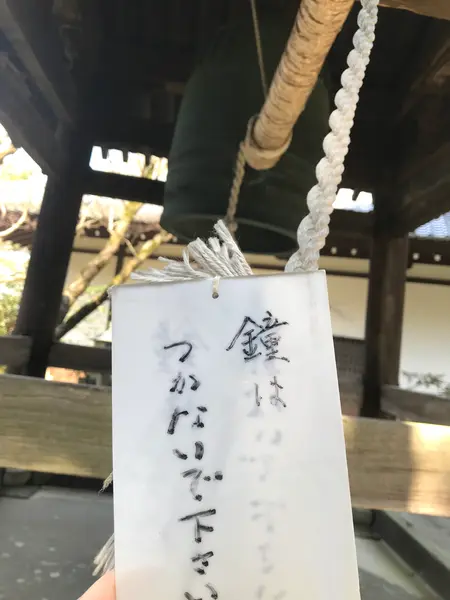 鐘は
つかないで下さい